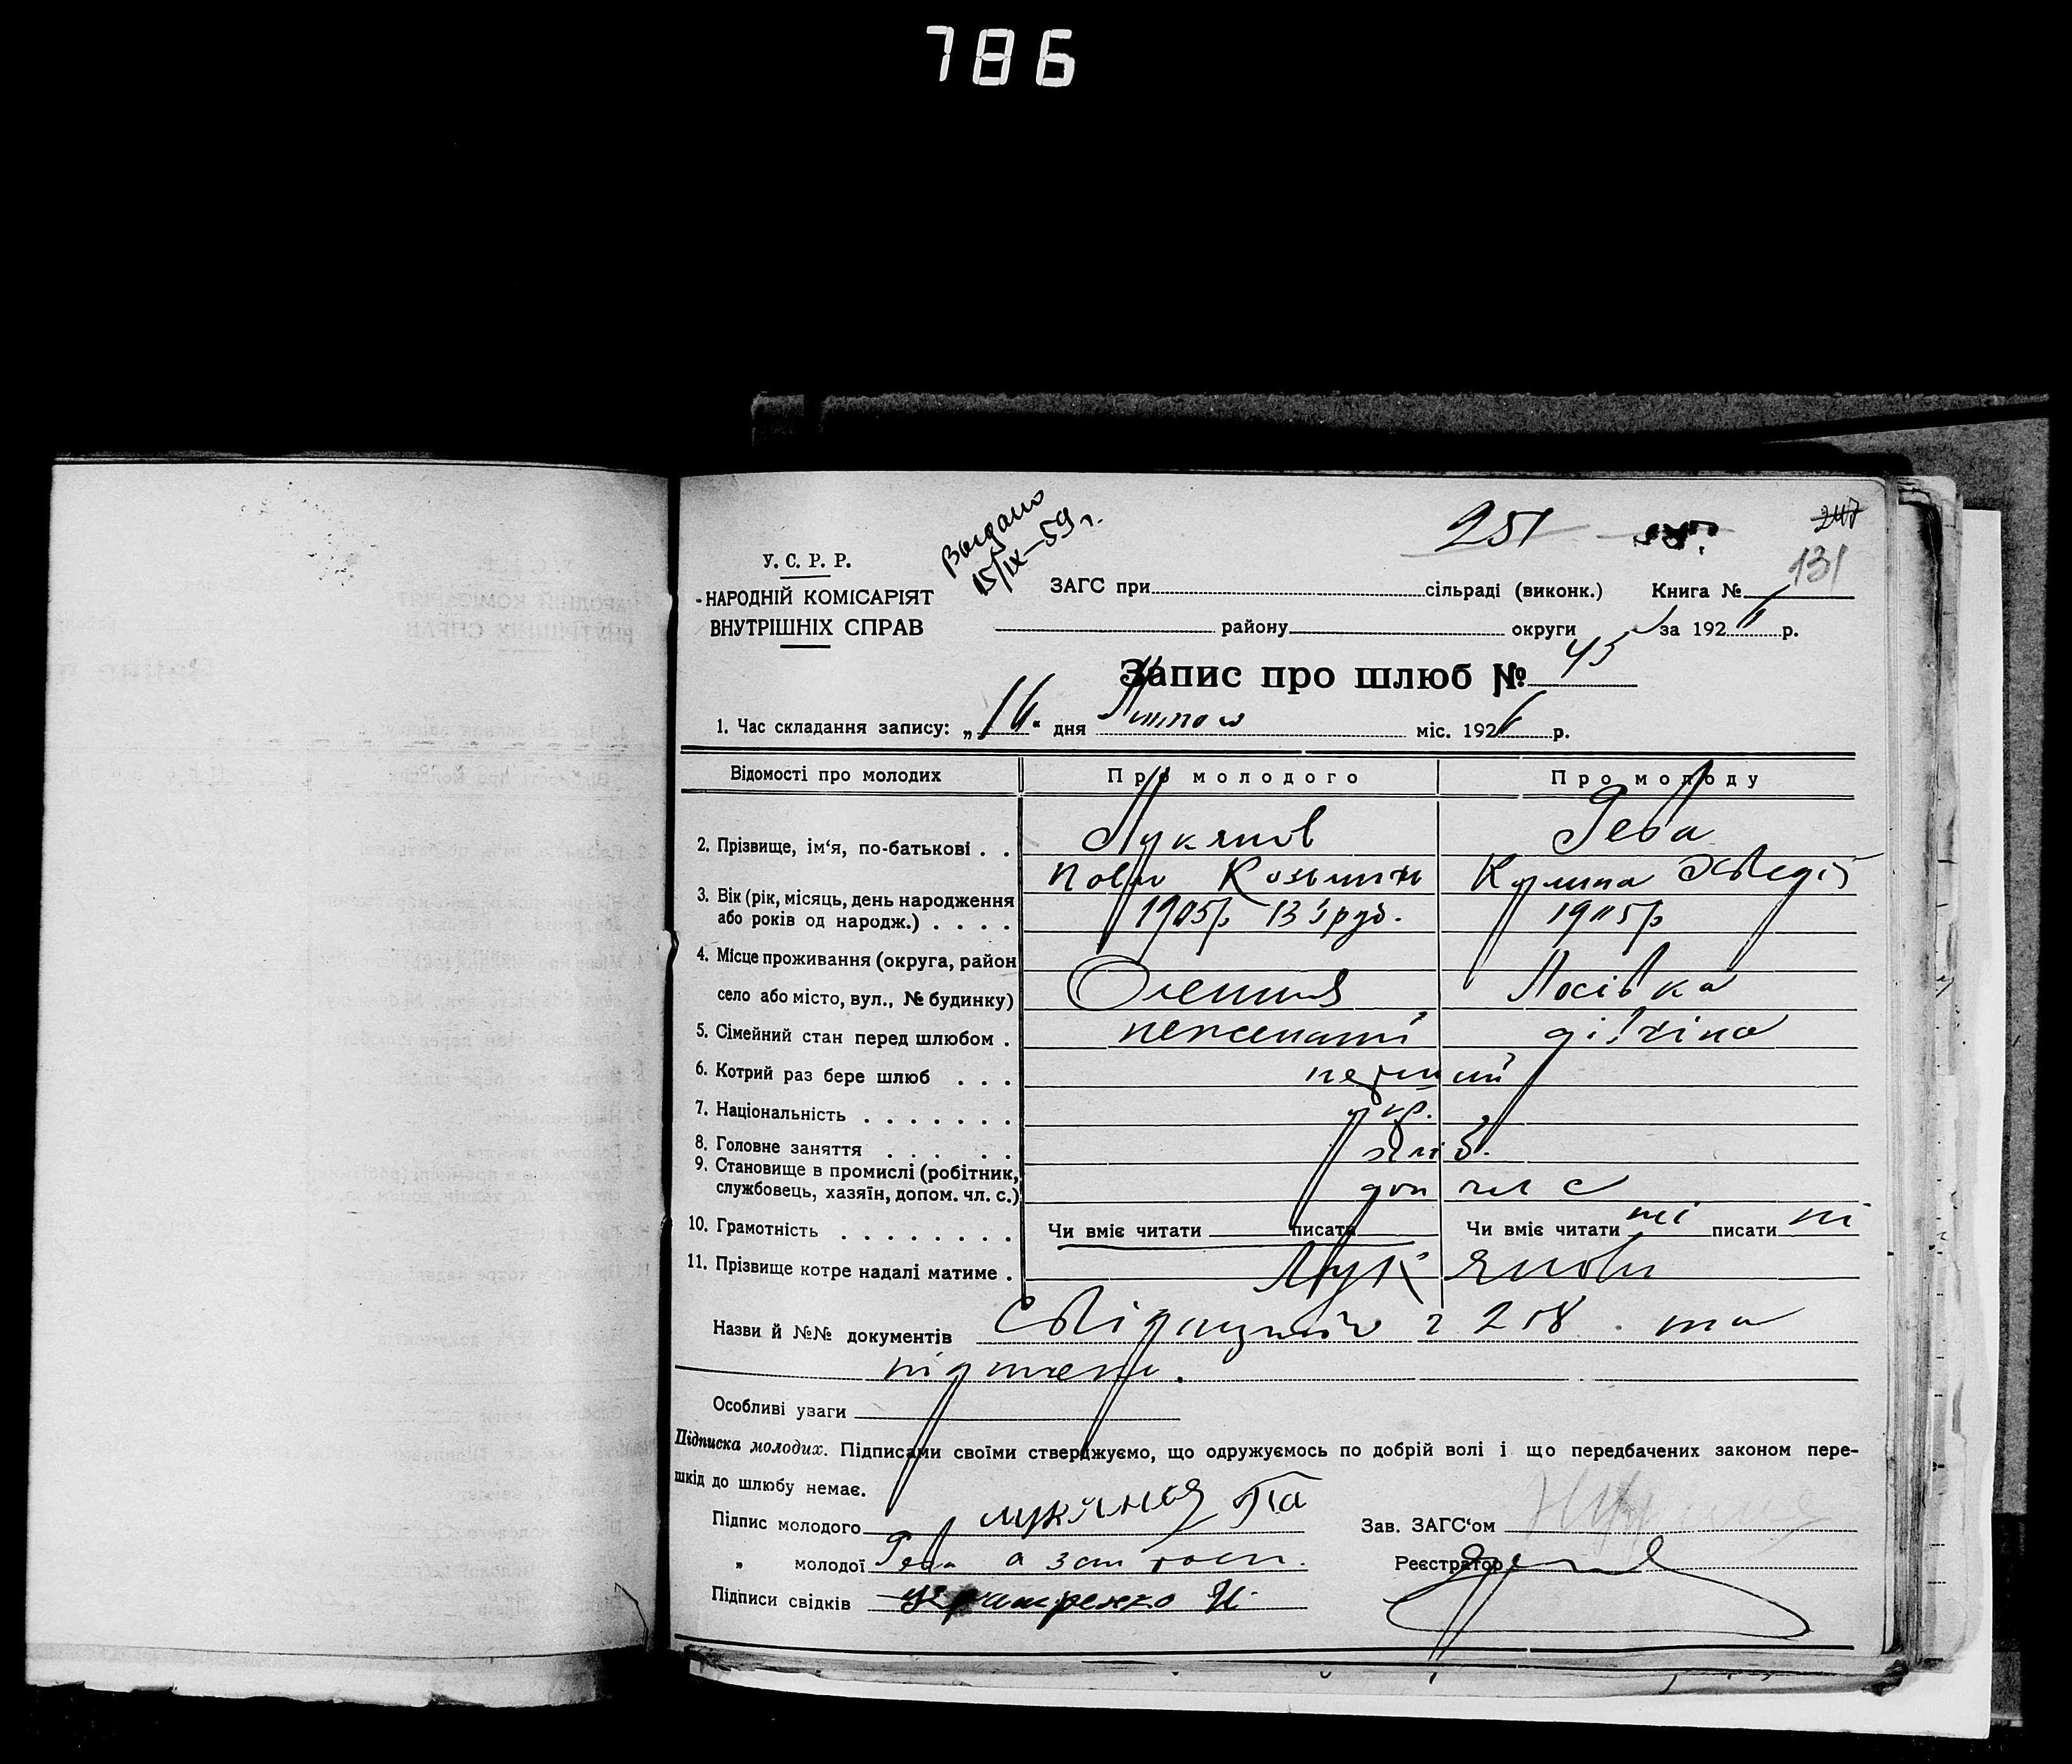 786
Выдано
15/IX–59 г.
251
247
131
У. С. Р. Р.
НАРОДНІЙ КОМІСАРІЯТ
ВНУТРІШНІХ СПРАВ
ЗАГС при сільраді (виконк.) Книга №
району округи за 1926 р.
Запис про шлюб № 45
1. Час складання запису: „16“ дня міс. 1926 р.
Відомості про молодих Про молодого Про молоду
2. Прізвище, ім‘я, по-батькові . . Лукянов Геба
Козьмич
3. Вік (рік, місяць, день народження 1905р 13 груд. 1905р
або років од народж.) . . . .
4. Місце проживання (округа, район
село або місто, вул., № будинку) Олешня Лосівка
5. Сімейний стан перед шлюбом . нежинатий дівчина
6. Котрий раз бере шлюб . . . перший
7. Національність . . . . . . . укр.
8. Головне заняття . . . . . хліб.
9. Становище в промислі (робітник,
службовець, хазяїн, допом. чл. с.) доп чл с
10. Грамотність . . . . . . . . Чи вміє читати писати Чи вміє читати ні писати ні
11. Прізвище котре надалі матиме . Лук‘янови
Назви й №№ документів 258 та
Особливі уваги
Підписка молодих. Підписами своїми стверджуємо, що одружуємось по добрій волі і що передбачених законом пере-
шкід до шлюбу немає.
Підпис молодого Лукянов Па
Зав. ЗАГС‘ом
„ молодої Геба а за
Реєстратор
Підписи свідків